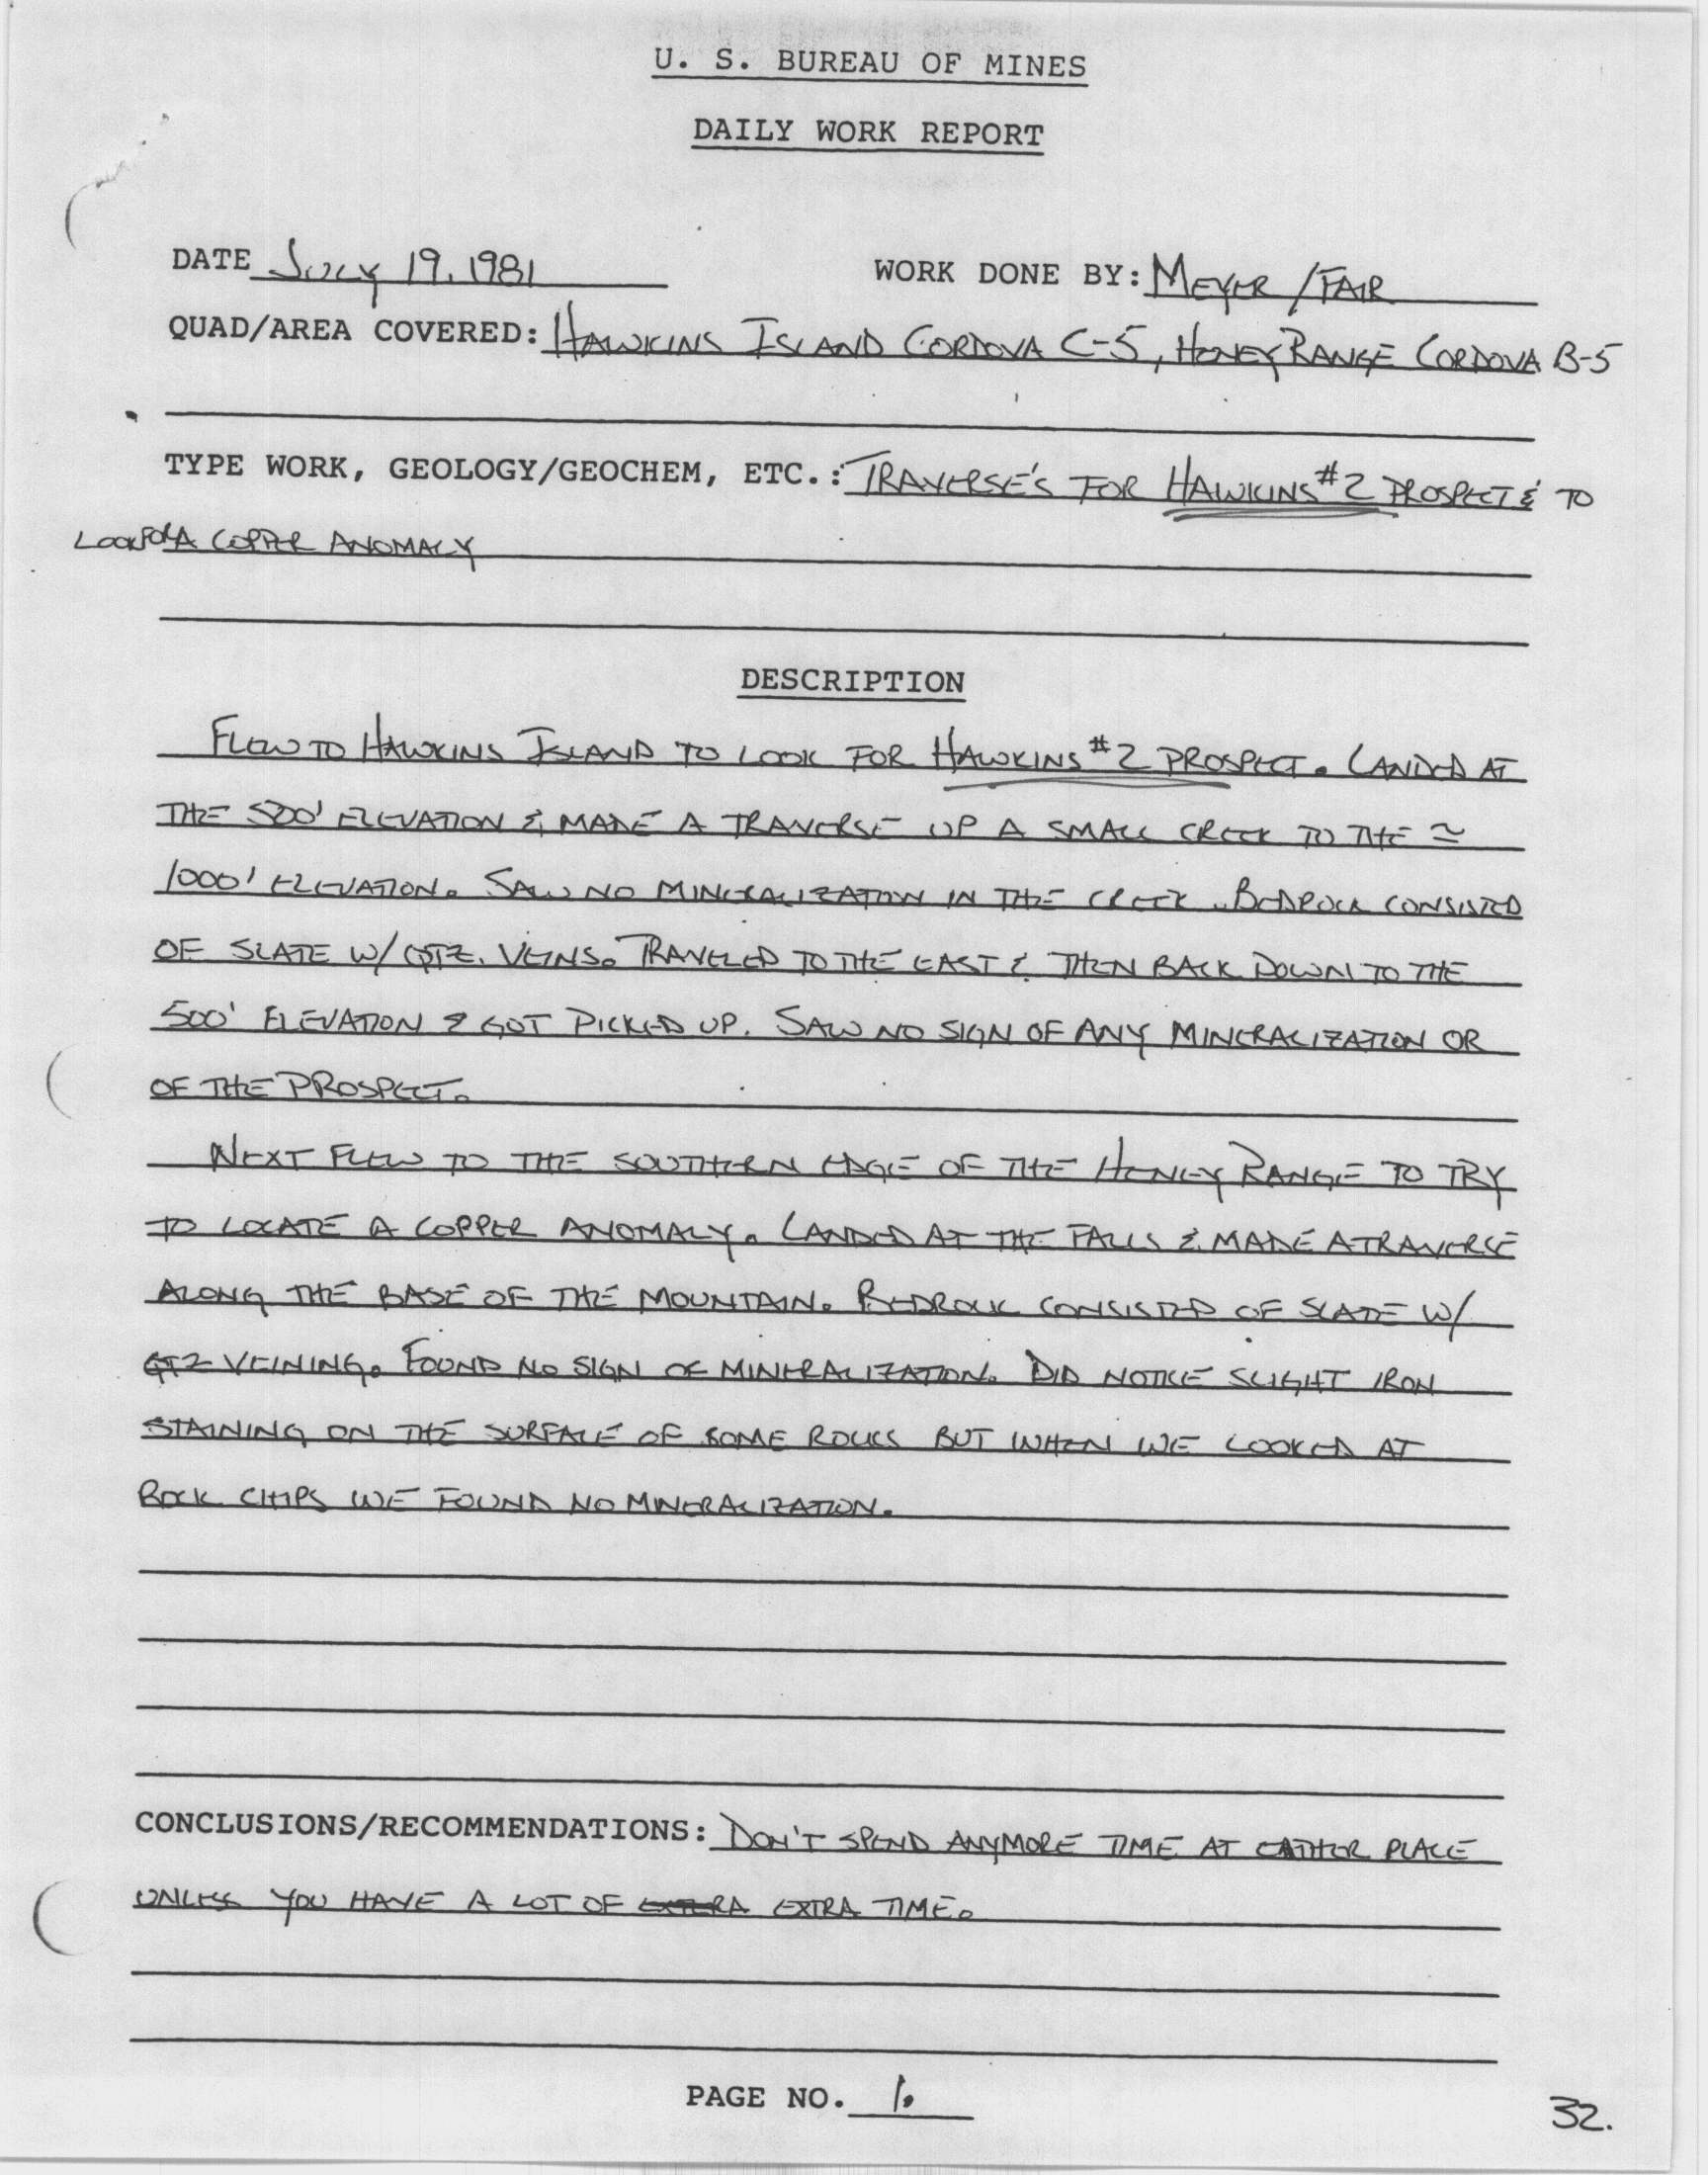 U. S. BUREAU OF MINES
DAILY WORK REPORT
DATE JULY 19, 1981 WORK DONE BY: MEYER / FAIR
QUAD/AREA COVERED: HAWKINS ISLAND CORDOVA C-5, HENEY RANGE CORDOVA B-5
TYPE WORK, GEOLOGY/GEOCHEM, ETC.: TRAVERSE'S FOR HAWKINS #2 PROSPECT & TO
LOOK FOR A COPPER ANOMALY
DESCRIPTION
FLEW TO HAWKINS ISLAND TO LOOK FOR HAWKINS #2 PROSPECT. LANDED AT
THE 500' ELEVATION & MADE A TRAVERSE UP A SMALL CREEK TO THE ≃
1000' ELEVATION. SAW NO MINERALIZATION IN THE CREEK. BEDROCK CONSISTED
OF SLATE W/ QTZ. VEINS. TRAVELED TO THE EAST & THEN BACK DOWN TO THE
500' ELEVATION & GOT PICKED UP. SAW NO SIGN OF ANY MINERALIZATION OR
OF THE PROSPECT.
NEXT FLEW TO THE SOUTHERN EDGE OF THE HENEY RANGE TO TRY
TO LOCATE A COPPER ANOMALY. LANDED AT THE FALLS & MADE A TRAVERSE
ALONG THE BASE OF THE MOUNTAIN. BEDROCK CONSISTED OF SLATE W/
QTZ VEINING. FOUND NO SIGN OF MINERALIZATION. DID NOTICE SLIGHT IRON
STAINING ON THE SURFACE OF SOME ROCKS BUT WHEN WE LOOKED AT
ROCK CHIPS WE FOUND NO MINERALIZATION.
CONCLUSIONS/RECOMMENDATIONS: DON'T SPEND ANYMORE TIME AT EATHER PLACE
UNLESS YOU HAVE A LOT OF EXTRA TIME.
PAGE NO. 1.
32.